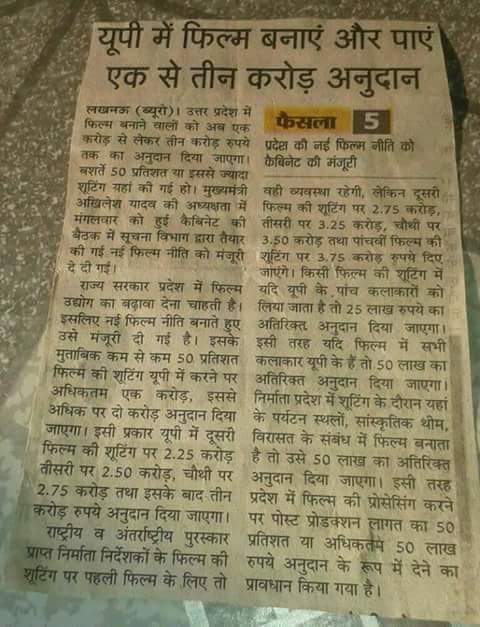 यूपी में फिल्म बनाएं और पाएं
एक से तीन करोड़ अनुदान
लखनऊ (ब्यूरो)। उत्तर प्रदेश में
फिल्म बनाने वालों को अब एक
करोड़ से लेकर तीन करोड़ रुपये
तक का अनुदान दिया जाएगा।
बशर्ते 50 प्रतिशत या इससे ज्यादा
शूटिंग यहां की गई हो। मुख्यमंत्री
अखिलेश यादव की अध्यक्षता में
मंगलवार को हुई कैबिनेट की
बैठक में सूचना विभाग द्वारा तैयार
की गई नई फिल्म नीति को मंजूरी
दे दी गई।
राज्य सरकार प्रदेश में फिल्म
उद्योग का बढ़ावा देना चाहती है।
इसलिए नई फिल्म नीति बनाते हुए
उसे मंजूरी दी गई है। इसके
मुताबिक कम से कम 50 प्रतिशत
फिल्म की शूटिंग यूपी में करने पर
अधिकतम एक करोड़, इससे
अधिक पर दो करोड़ अनुदान दिया
जाएगा। इसी प्रकार यूपी में दूसरी
फिल्म की शूटिंग पर 2.25 करोड़
तीसरी पर 2.50 करोड़, चौथी पर
2.75 करोड़ तथा इसके बाद तीन
करोड़ रुपये अनुदान दिया जाएगा।
राष्ट्रीय व अंतर्राष्ट्रीय पुरस्कार
प्राप्त निर्माता निर्देशकों के फिल्म की
शूटिंग पर पहली फिल्म के लिए तो
फैसला 5
प्रदेश की नई फिल्म नीति को
कैबिनेट की मंजूरी
वही व्यवस्था रहेगी, लेकिन दूसरी
फिल्म की शूटिंग पर 2.75 करोड़,
तीसरी पर 3.25 करोड़, चौथी पर
3.50 करोड़ तथा पांचवीं फिल्म की
शूटिंग पर 3.75 करोड़ रुपये दिए
जाएंगे। किसी फिल्म की शूटिंग में
यदि यूपी के पांच कलाकारों को
लिया जाता है तो 25 लाख रुपये का
अतिरिक्त अनुदान दिया जाएगा।
इसी तरह यदि फिल्म में सभी
कलाकार यूपी के हैं तो 50 लाख का
अतिरिक्त अनुदान दिया जाएगा।
निर्माता प्रदेश में शूटिंग के दौरान यहां
के पर्यटन स्थलों, सांस्कृतिक थीम,
विरासत के संबंध में फिल्म बनाता
है तो उसे 50 लाख का अतिरिक्त
अनुदान दिया जाएगा। इसी तरह
प्रदेश में फिल्म की प्रोसेसिंग करने
पर पोस्ट प्रोडक्शन लागत का 50
प्रतिशत या अधिकतम 50 लाख
रुपये अनुदान के रूप में देने का
प्रावधान किया गया है।